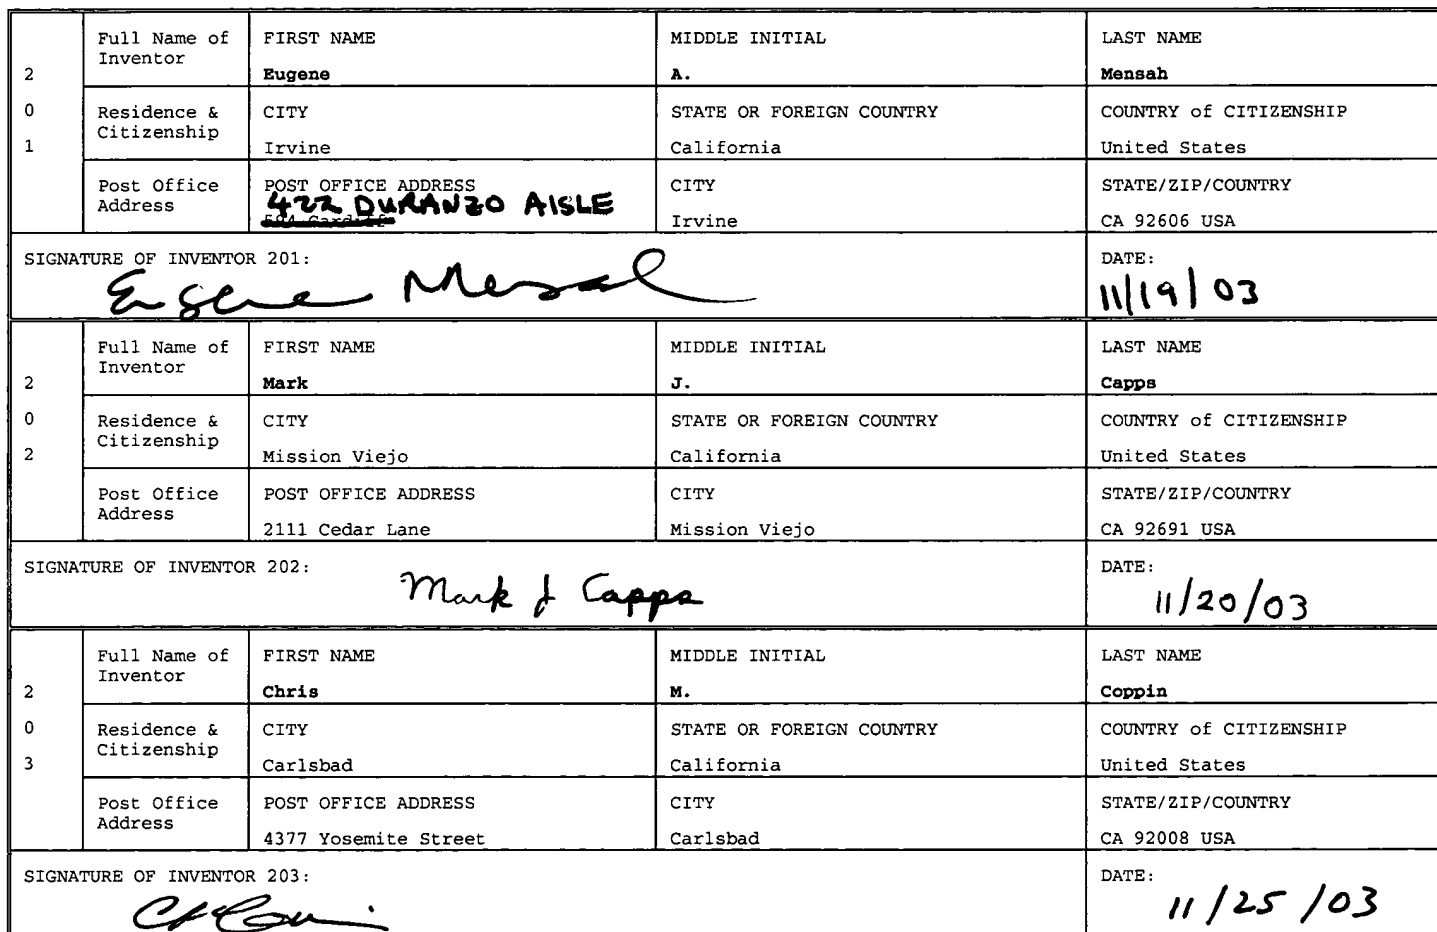 2
0
1
Full Name of
Inventor
FIRST NAME
Eugene
MIDDLE INITIAL
A.
LAST NAME
Mensah
Residence &
Citizenship
CITY
Irvine
STATE OR FOREIGN COUNTRY
California
COUNTRY of CITIZENSHIP
United States
Post Office
Address
POST OFFICE ADDRESS
422 DURANZO AISLE
CITY
Irvine
STATE/ZIP/COUNTRY
CA 92606 USA
SIGNATURE OF INVENTOR 201:
Eugene Mensah
DATE:
11/19/03
2
0
2
Full Name of
Inventor
FIRST NAME
Mark
MIDDLE INITIAL
J.
LAST NAME
Capps
Residence &
Citizenship
CITY
Mission Viejo
STATE OR FOREIGN COUNTRY
California
COUNTRY of CITIZENSHIP
United States
Post Office
Address
POST OFFICE ADDRESS
2111 Cedar Lane
CITY
Mission Viejo
STATE/ZIP/COUNTRY
CA 92691 USA
SIGNATURE OF INVENTOR 202:
Mark J Capps
DATE:
11/20/03
2
0
3
Full Name of
Inventor
FIRST NAME
Chris
MIDDLE INITIAL
M.
LAST NAME
Coppin
Residence &
Citizenship
CITY
Carlsbad
STATE OR FOREIGN COUNTRY
California
COUNTRY of CITIZENSHIP
United States
Post Office
Address
POST OFFICE ADDRESS
4377 Yosemite Street
CITY
Carlsbad
STATE/ZIP/COUNTRY
CA 92008 USA
SIGNATURE OF INVENTOR 203:
DATE:
11/25/03